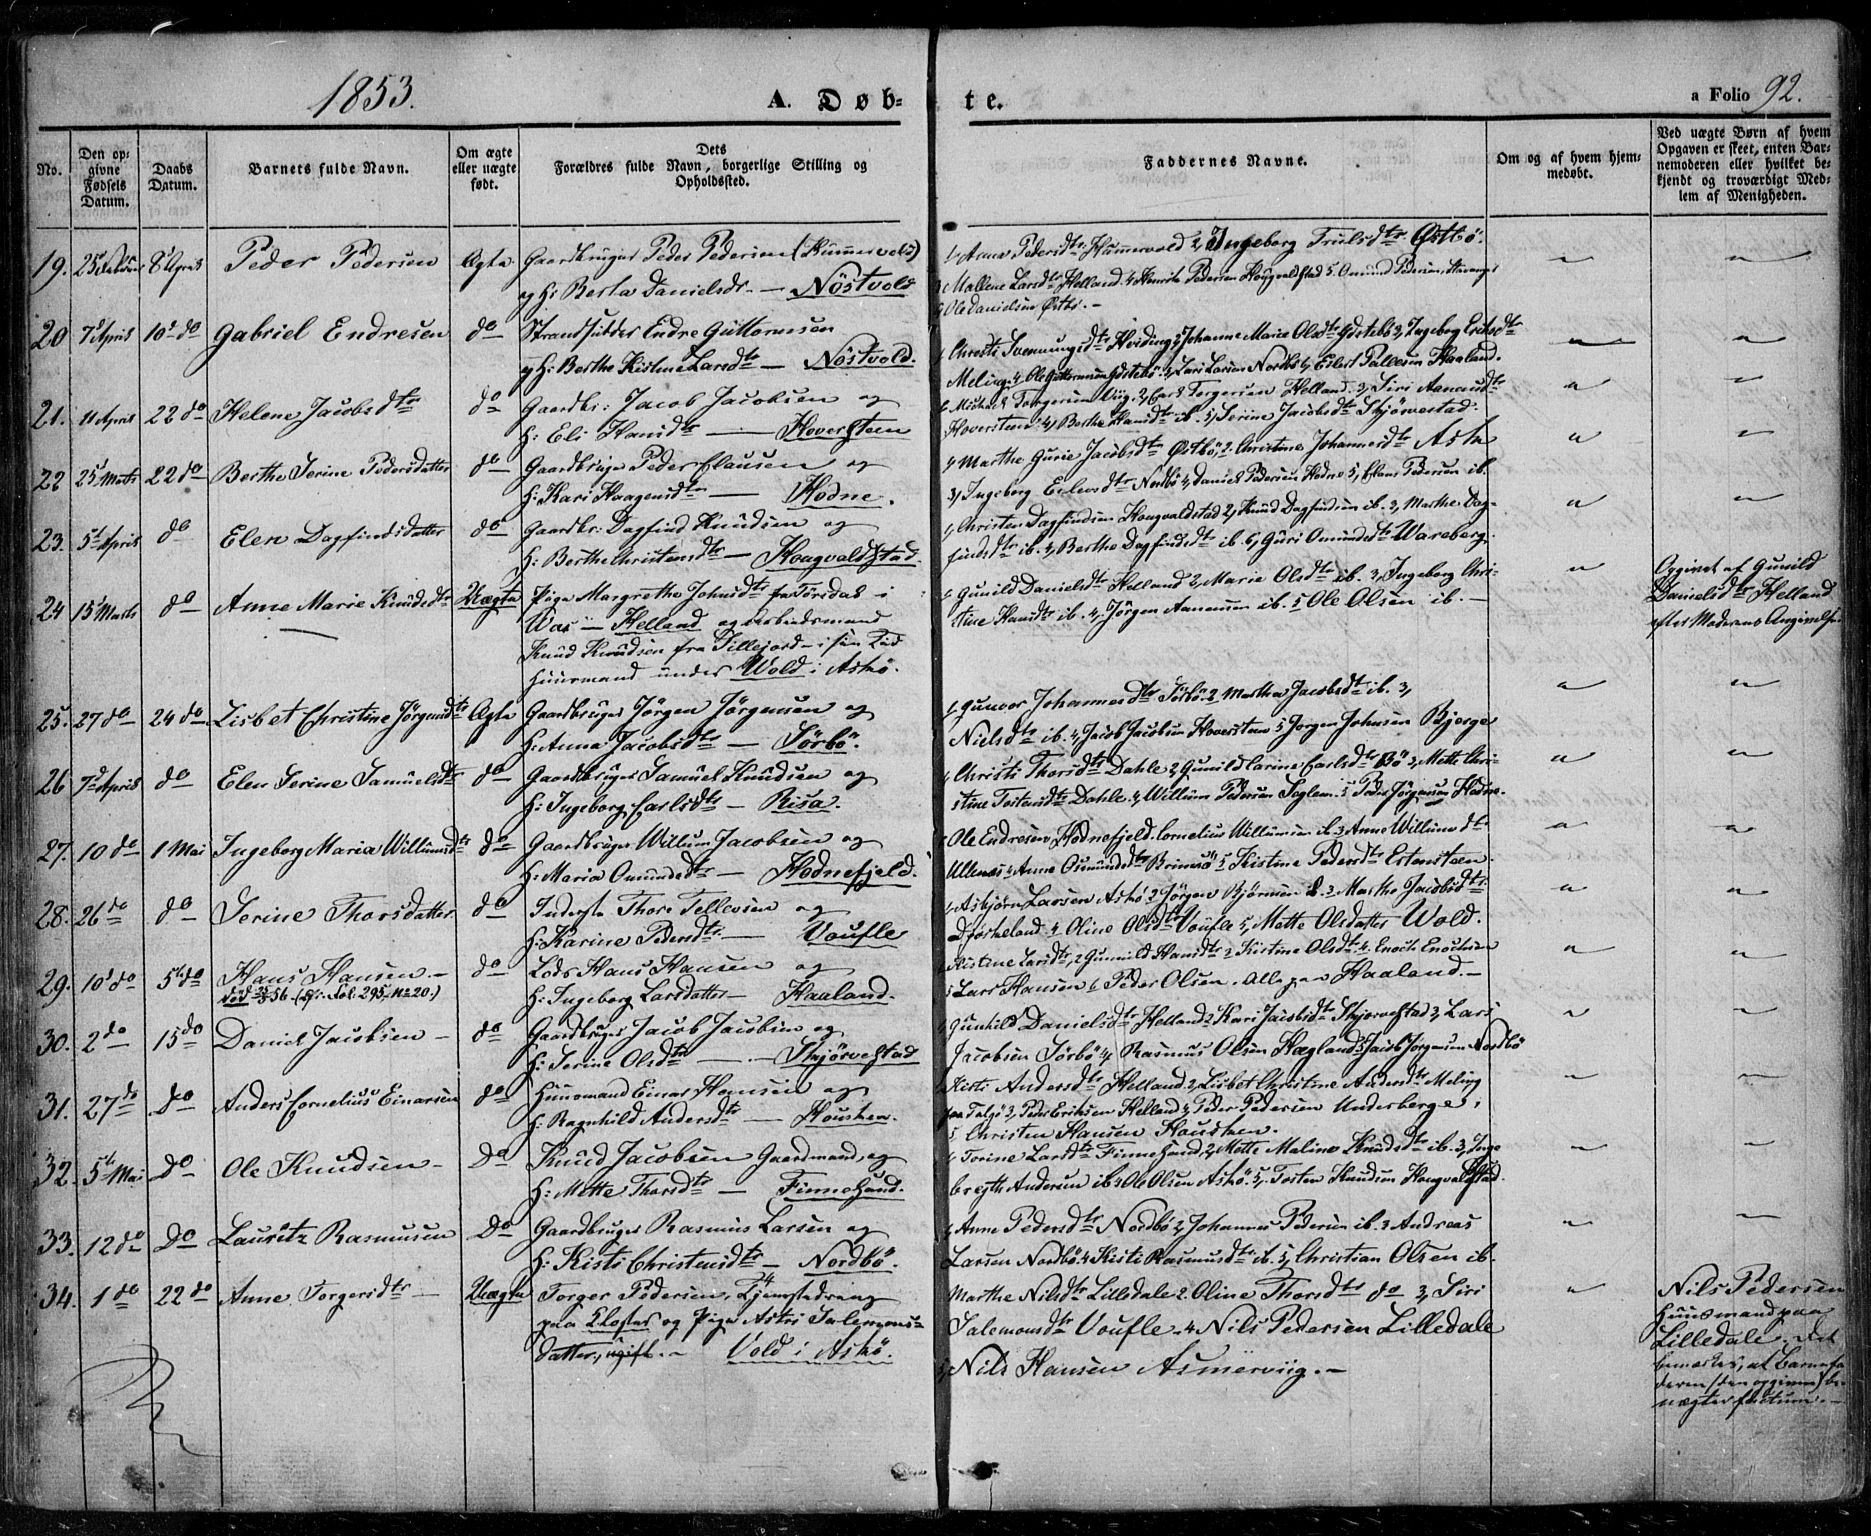 1853.
A. Døb-
te.
a Folio 92.
No.
Den op-
givne
Fødsels
Datum.
Daabs
Datum.
Barnets fulde Navn.
Om ægte
eller uægte
født.
Dets
Forældres fulde Navn, borgerlige Stilling og
Opholdssted.
Faddernes Navne.
Om og af hvem hjem-
medøbt.
Ved uægte Børn af hvem
Opgaven er skeet, enten Bar-
nemoderen eller hvilket be-
kjendt og troværdigt Med-
lem af Menigheden.
19. 8 April Peder Pedersen Ægte Gaardbruger Peder Pedersen (Hummervold)
og H: Berta Danielsdr. — Nöstvold
1, Anna Pedersdtr Hummervold 2, Ingeborg Trulsdtr Östbö.
3, Mallene Larsdtr Helland. 4, Henrik Pedersen Hougvaldstad 5, Omund Pedersen, Stavanger
6 Ole Danielsen Östbö. —
20 7de April 10de do Gabriel Endresen do Strandsidder Endre Guttormsen
og H: Berthe Kistine Larsdtr — Nöstvold.
Johanne Marie Olsdtr 3, Ingeborg Eriksdtr
Meling. 4 Ole Guttormsen Lars Larsen Nordbö Eilert Pallesen Haaland.
21. 11 April 22 do Helene Jacobsdtr do Gaardbr: Jacob Jacobsen og
H: Eli Hansdtr — Hoversteen
Torgersen Helland. 3, Siri Aanensdtr
Hoversteen. 4, Berthe Hansdtr ib. 5, Serine Jacobsdtr Skjörvestad.
22 25 Marts 22 do Berthe Serine Pedersdatter do Gaardbruger Peder Clausen og
H: Kari Haagensdtr — Hodne.
1, Marthe Gurie Jacobsdtr Östbö, 2, Christine Johannesdtr Askö
3, Ingeborg Nordbö 4, Daniel Pedersen Hodne 5, Claus Pedersen ib.
23. 5te April do Elen Dagfindsdatter do Gaardbr: Dagfind Knudsen og
H: Berthe Christensdtr — Hougvaldstad.
1, Christen Dagfindsen Hougvaldstad 2, Knud Dagfindsen ib. 3, Marthe Dag-
findsdtr ib. 4, Berthe Dagfindsdtr ib. 6, Guri Omundsdtr Wareberg.
24 15 Marts do Anne Marie Knudsdtr Uægte Pige Margrethe Johnsdtr fra Torsdal i
— Helland og Arbeidsmand
Knud Knudsen fra Tillejord — i sin Tid
Huusmand under Wold i Askö.
1, Gunild Danielsdtr Helland 2, Marie Olsdtr ib. 3, Ingeborg Chri-
stine Hansdtr ib. 4, Jörgen Aanensen ib. 5 Ole Olsen ib. —
Opgivet af Gunild
Danielsdtr Helland
efter Moderens Angivelse.
25. 27 do 24 do Lisbet Christine Jörgensdtr Ægte Gaardbruger Jörgen Jörgensen og
H: Anna Jacobsdtr — Sörbö.
1, Gunvor Johannesdtr Sörbö 2 Martha Jacobsdtr ib. 3,
Nielsdtr ib. 4, Jacob Jacobsen Hoversteen 5 Jörgen Johnsen Bjerge
26 7de April do Elen Serine Samuelsdtr do Gaardbruger Samuel Knudsen og
H: Ingeborg Carlsdtr — Risa.
1, Christi Thorsdtr Dahle 2, Gunild Carine Carlsdtr Bö 3, Mette Chri-
stine Tostensdtr Dahle. 4, Willum Pedersen 5 Peder Jörgensen Hodne.
27. 10 do 1 Mai Ingeborg Maria Willumsdtr do Gaardbruger Willum Jacobsen og
H: Maria Omundsdtr — Hodnefjeld.
1 Ole Endresen Hodnefjeld. Cornelius Willumsen ib. 3 Anne Willumsdtr
4 Anne Osmundsdtr Brimsö 5 Kistine Pedersdtr Estensteen
28. 26 do do Serine Thorsdatter do Inderste Thore Tellevsen og
H: Karine Pedersdtr — Voufle
1, Asbjörn Larsen Askö 2 Jörgen Björnsen ib. 3 Marthe Jacobsdtr
4 Oline Olsdtr Voufle 5, Mette Olsdatter Wold.
29. 10de do 5te do Hans Hansen — do Lods Hans Hansen og
død 25/8 56 (cfr. Fol. 295, No 20.) H: Ingeborg Larsdatter — Haaland.
1, Kistine Larsdtr, 2 Gunnild Hansdtr 3 Kistine Olsdtr 4 Enoch Enochsen
5 Lars Hansen 6 Peder Olsen. Alle paa Haaland. —
30. 2 do 15 do Daniel Jacobsen — do Gaardbruger Jacob Jacobsen og
H: Serine Olsdtr — Skjörvestad
1, Gunhild Danielsdtr Helland 2 Kari Jacobsdtr Skjörvestad 3, Lars
Jacobsen Sörbö 4, Rasmus Olsen Hægland 5 Jacob Jörgensen Nordbö
31. 27 do do Anders Cornelius Einarsen do Huusmand Einar Hansen og
H: Ragnhild Andersdtr — Housken.
1, Kisti Andersdtr Helland. 2, Lisbet Christine Andersdtr Meling
paa Talgö 3, Peder Eriksen Helland 4, Peder Pedersen Underberge,
5 Christen Hansen Housken.
32. 5te Mai do Ole Knudsen — Do Knud Jacobsen Gaardmand, og
H: Mette Thorsdtr — Finnesand.
1, Torine Larsdtr Finnesand, 2, Mette Maline Knudsdtr ib. 3, Inge
bregth Andersen ib 4 Ole Olsen Askö. 5, Tosten Knudsen Hougvaldstad.
33. 12 do Do Lauritz Rasmusen Do Gaardbruger Rasmus Larsen og
H: Kisti Christensdtr — Nordbö.
1, Anne Pedersdtr Nordbö 2, Johannes Pedersen ib. 3 Andreas
Larsen Nordbö. 4 Kisti Rasmusdtr ib. 5, Christian Olsen ib.
34. 1 do 22 do Anne Torgersdtr — Uægte Torger Pedersen, Tjenestedreng
paa Kloster og Pige Astri Salemons-
datter, ugift. — Vold i Askö.
Marthe Nilsdtr Lilledale 2. Oline Thorsdtr do 3, Siri
Salemonsdtr Voufle. 4 Nils Pedersen Lilledale
5, Nils Hansen Asmervig. —
Nils Pedersen
Huusmand paa
Lilledale. Det
bemærkes, at Barnefa
deren (den opgivne) be-
nægter factum. —